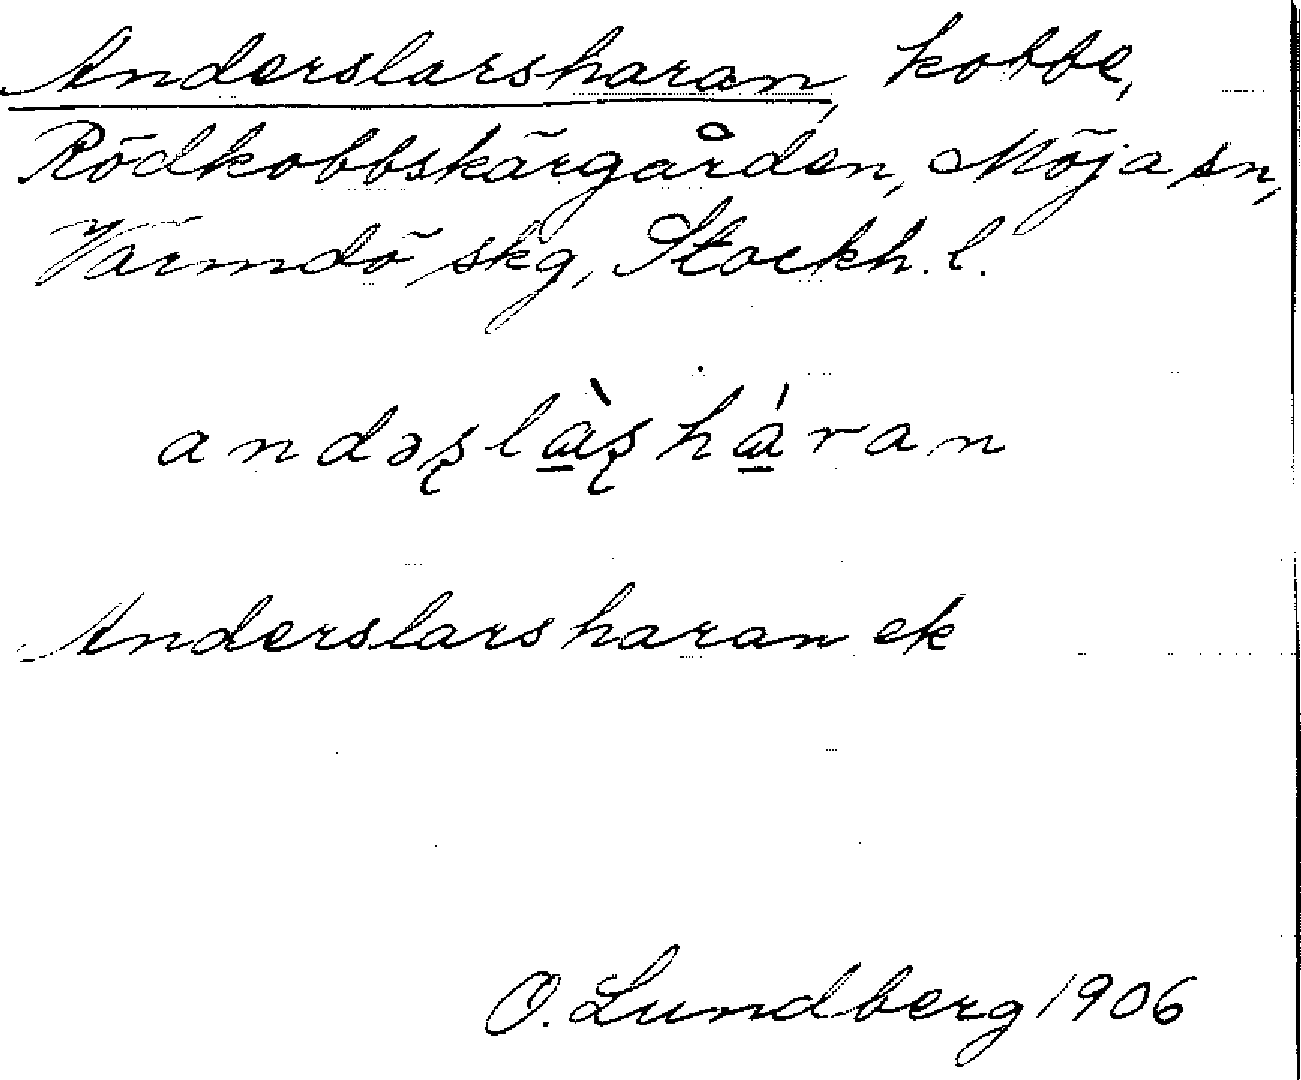 Anderslarsharan, kobbe,
Rödkobbskärgården, Möja sn,
Värmdö skg, Stockh. l.
andəʂlɑ̀ʂhɑ́ran
Anderslarsharan ek
O. Lundberg 1906